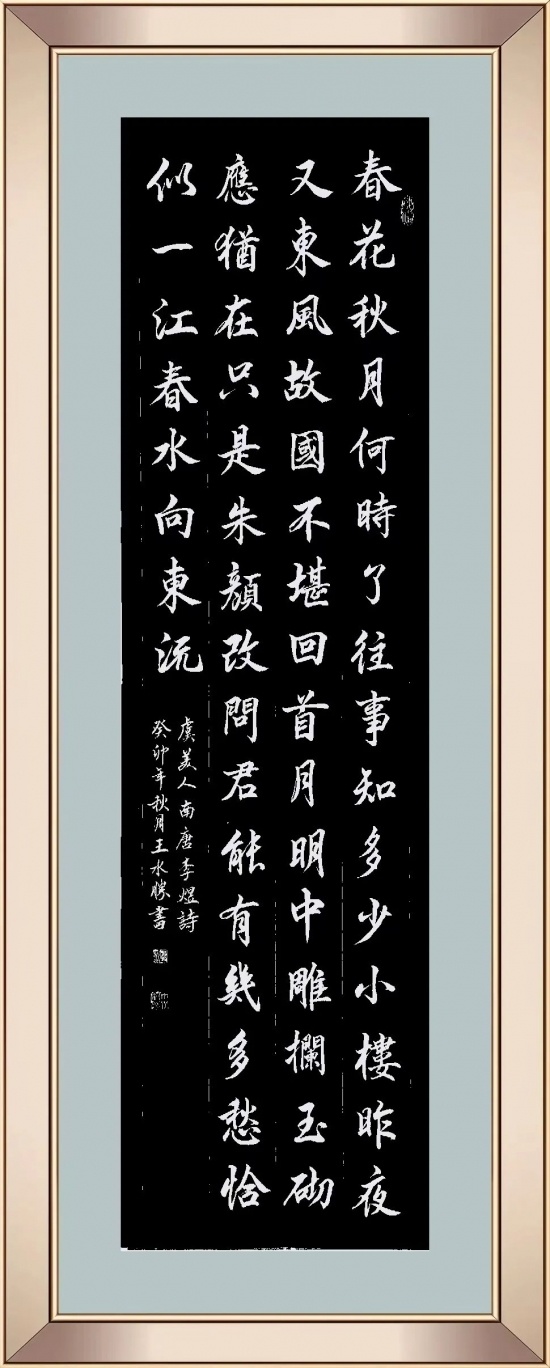 春花秋月何時了往事知多少小樓昨夜
又東風故國不堪回首月明中雕欄玉砌
應猶在只是朱顏改問君能有幾多愁恰
似一江春水向東流
虞美人南唐李煜詩
癸卯年秋月王水勝書